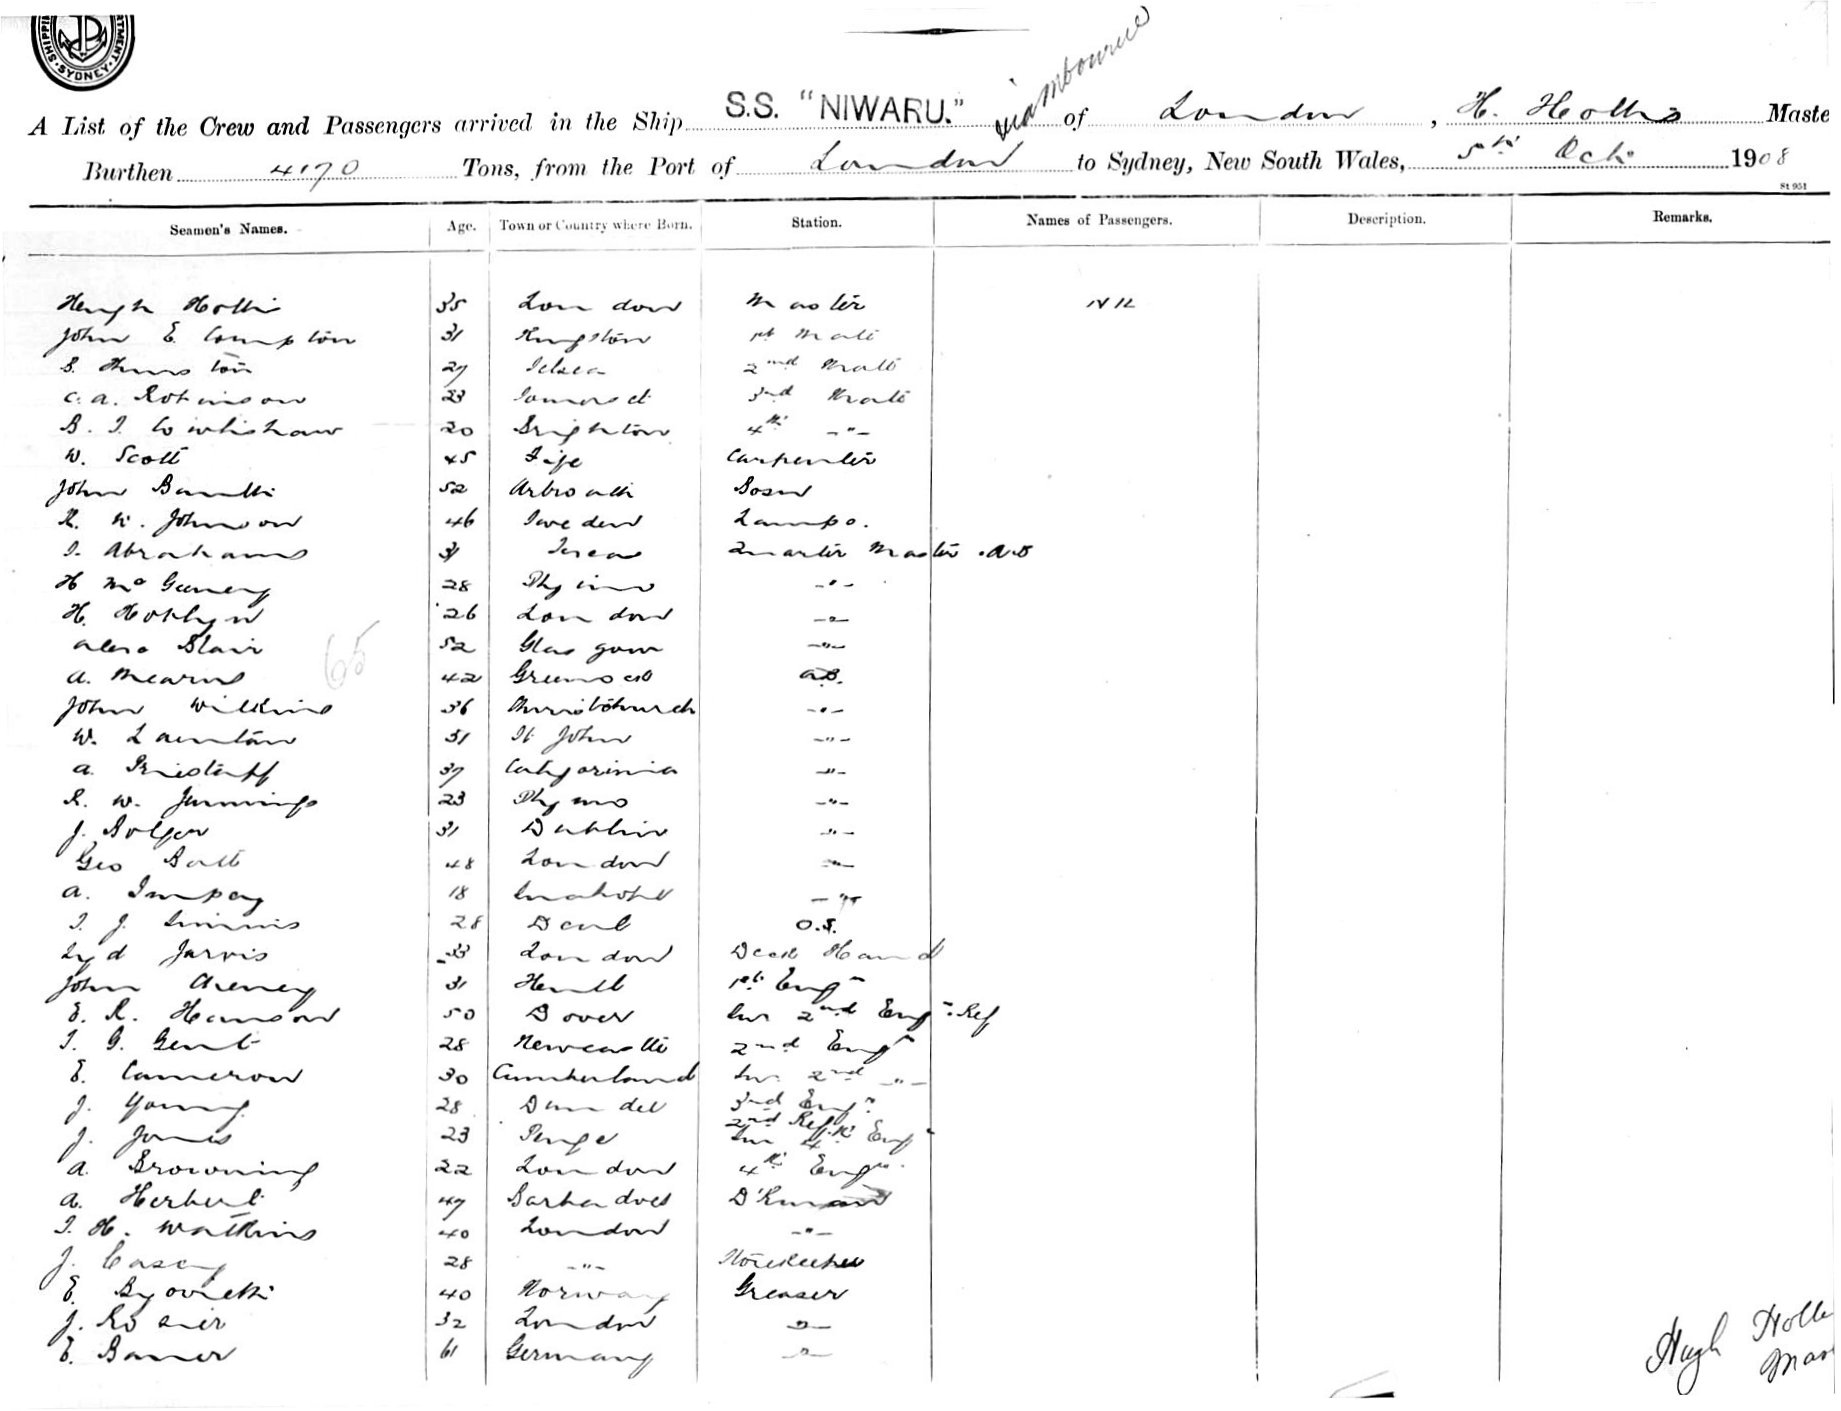 SHIPPING DEPARTMENT. SYDNEY.
via Melbourne
A List of the Crew and Passengers arrived in the Ship S.S. "NIWARU." of London, H. Hollis Maste
Burthen 4170 Tons, from the Port of London to Sydney, New South Wales, 5th Oct. 1908
St 951
Seamen's Names. Age. Town or Country where Born. Station. Names of Passengers. Description. Remarks.
Hugh Hollis 35 London Master Nil
John E. Compton 31 Kingston 1st Mate
S. 29 2nd Mate
C. A. Robinson 23 Somerset 3rd Mate
B. I. Cowlishaw 20 Brighton 4th -"-
W. Scott 45 Fife Carpenter
John 52 Arbroath Bosun
R. W. Johnson 46 Sweden Lamps.
I. Abrahams 31 Quarter Master . A.B
H 28 -"-
H. 26 London -"-
Alex. Blair 52 Glasgow -"-
65
A. Mearns 42 Greenock A.B.
John Wilkins 36 Christchurch -"-
W. 31 St John -"-
A. 37 -"-
R. W. Jennings 23 -"-
J. Bolger 31 Dublin -"-
Geo Batt 48 London -"-
A. Impey 18 -"-
T. J. Simmis 28 Deal O.S.
Syd Jarvis 33 London Deck Hand
John 31 1st Engr
E. R. 50 Dover Jnr 2nd Engr. Ref
T. G. Gent 28 Newcastle 2nd Engr
E. Cameron 30 Cumberland Jnr 2nd -"-
J. Young 28 Dundee 3rd Engr.
2nd Ref.
J. Jones 23 Penge Jnr 4th Engr
A. Browning 22 London 4th Engr.
A. Herbert 49 Barbadoes D'Kman
T. H. Watkins 40 London -"-
J. Casey 28 -"- Storekeeper
E. 40 Norway Greaser
J. Rosier 32 London -"-
E. 61 Germany -"-
Hugh Holli
Mas